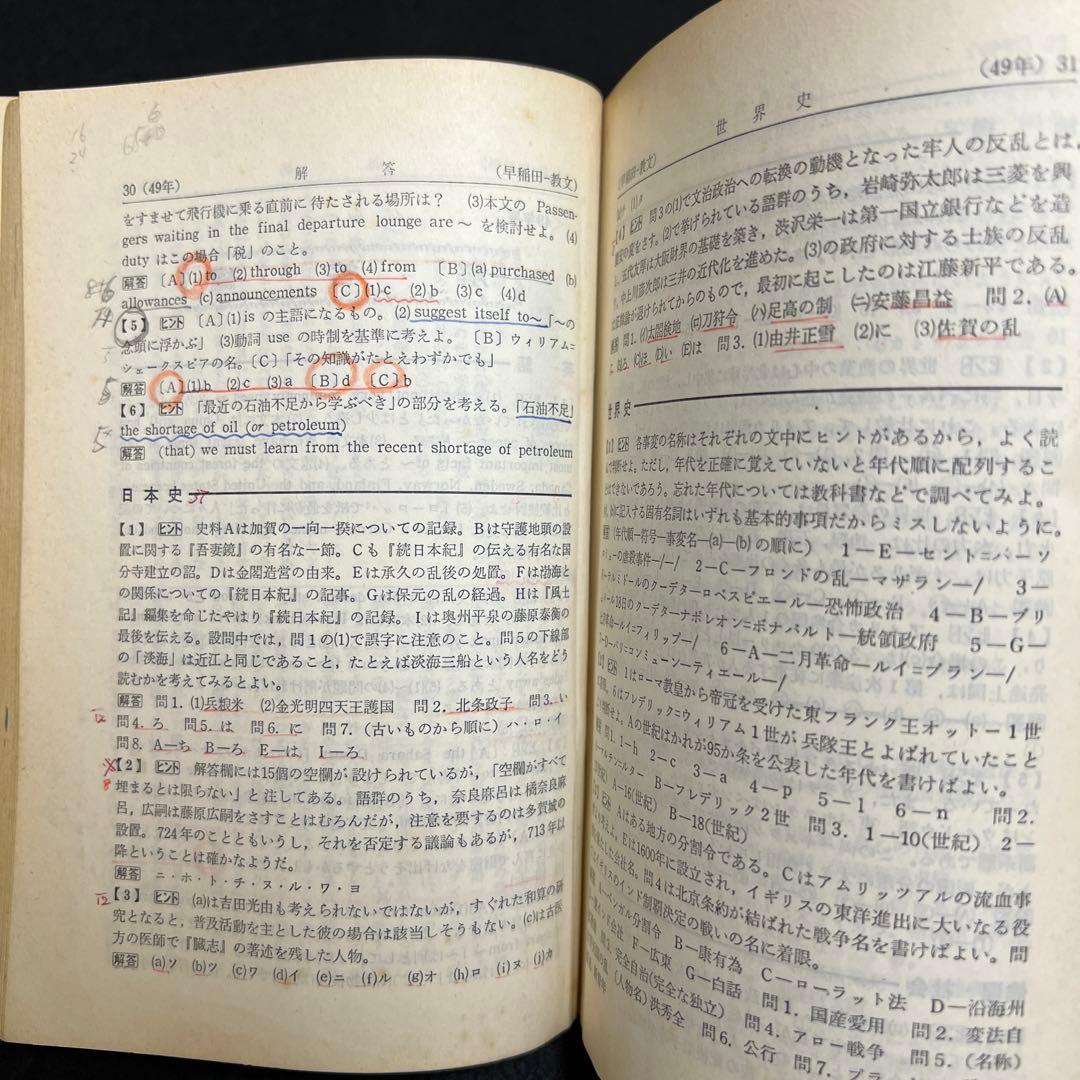 30 (49年) 解答 (早稲田–教文)
をすませて飛行機に乗る直前に 待たされる場所は? (3)本文の Passen-
gers waiting in the final departure lounge are～ を検討せよ。(4)
duty はこの場合「税」のこと。
解答 〔A〕(1)to (2)through (3)to (4)from 〔B〕(a)purchased (b)
allowances (c)announcements 〔C〕(1)c (2)b (3)c (4)d
【5】 ヒント 〔A〕(1)is の主語になるもの。(2)suggest itself to～「～の
念頭に浮かぶ」(3)動詞 use の時制を基準に考えよ。〔B〕ウィリアム=
シェークスピアの名。〔C〕「その知識がたとえわずかでも」
解答 〔A〕(1)b (2)c (3)a 〔B〕d 〔C〕b
【6】 ヒント 「最近の石油不足から学ぶべき」の部分を考える。「石油不足」
the shortage of oil (or petroleum)
解答 (that) we must learn from the recent shortage of petroleum
日本史 37
【1】 ヒント 史料Aは加賀の一向一揆についての記録。Bは守護地頭の設
置に関する『吾妻鏡』の有名な一節。Cも『続日本紀』の伝える有名な国
分寺建立の詔。Dは金閣造営の由来。Eは承久の乱後の処置。Fは渤海と
の関係についての『続日本紀』の記事。Gは保元の乱の経過。Hは『風土
記』編集を命じたやはり『続日本紀』の記録。Iは奥州平泉の藤原泰衡の
最後を伝える。設問中では，問1の(1)で誤字に注意のこと。問5の下線部
の「淡海」は近江と同じであること，たとえば淡海三船という人名をどう
読むかを考えてみるとよい。
解答 問1. (1)兵粮米 (2)金光明四天王護国 問2. 北条政子 問3. い
問4. ろ 問5. は 問6. に 問7. (古いものから順に) ハ・ロ・イ
問8. A―ち B―ろ E―は I―ろ
【2】 ヒント 解答欄には15個の空欄が設けられているが，「空欄がすべて
埋まるとは限らない」と注してある。語群のうち，奈良麻呂は橘奈良麻
呂，広嗣は藤原広嗣をさすことはむろんだが，注意を要するのは多賀城の
設置。724年のことともいうし，それを否定する議論もあるが，713年以
降ということは確かなようだ。
解答 ニ・ホ・ト・チ・ヌ・ル・ワ・ヨ
【3】 ヒント (a)は吉田光由も考えられないではないが，すぐれた和算の研
究となると，普及活動を主とした彼の場合は該当しそうもない。(c)は古医
方の医師で『臓志』の著述を残した人物。
解答 (a)ソ (b)ツ (c)ワ (d)イ (e)ニ (f)ル (g)オ (h)ロ (i)ヌ (j)カ
(早稲田–教文) 世界史 (49年) 31
ヒント 問3の(1)で文治政治への転換の動機となった牢人の反乱とは，
をさす。(2)で挙げられている語群のうち，岩崎弥太郎は三菱を興
五代友厚は大阪財界の基礎を築き，渋沢栄一は第一国立銀行などを造
中上川彦次郎は三井の近代化を進めた。(3)の政府に対する士族の反乱
が退けられてからのもので，最初に起こしたのは江藤新平である。
問1. (イ)太閤検地 (ロ)刀狩令 (ハ)足高の制 (ニ)安藤昌益 問2. (A)
(D)い (E)は 問3. (1)由井正雪 (2)に (3)佐賀の乱
世界史
【1】 ヒント 各事変の名称はそれぞれの文中にヒントがあるから，よく読
せよ。ただし，年代を正確に覚えていないと年代順に配列するこ
できないであろう。忘れた年代については教科書などで調べてみよ。
に記入する固有名詞はいずれも基本的事項だからミスしないように。
(年代順―符号―事変名―(a)―(b)の順に) 1―E―セント=バーソ
の虐殺事件―/―/ 2―C―フロンドの乱―マザラン―/ 3―
テルミドールのクーデター―ロベスピエール―恐怖政治 4―B―ブリ
18日のクーデター―ナポレオン=ボナパルト―統領政府 5―G―
革命―ルイ=フィリップ―/ 6―A―二月革命―ルイ=ブラン―/
パリ=コミューン―ティエール―/
ヒント 1はローマ教皇から帝冠を受けた東フランク王オットー1世
6はフレデリック=ウィリアム1世が兵隊王とよばれていたこと
Aの世紀はかれが95か条を公表した年代を書けばよい。
問1. 1―h 2―c 3―a 4―p 5―l 6―n 問2.
ルター B―フレデリック2世 問3. 1―10(世紀) 2―
A―16(世紀) B―18(世紀)
ヒント Aはある地方の分割令である。Cはアムリッツアルの流血事
Eは1600年に設立され，イギリスの東洋進出に大いなる役
した会社名。問4は北京条約が結ばれた戦争名を書けばよい。問
イギリスのインド制覇決定の戦いの名に着眼。
ベンガル分割令 B―康有為 C―ローラット法 D―沿海州
F―広東 G―白話 問1. 国産愛用 問2. 変法自
完全自治(完全な独立) 問4. アロー戦争 問5. (名称)
(人物名) 洪秀全 問6. 公行 問7.